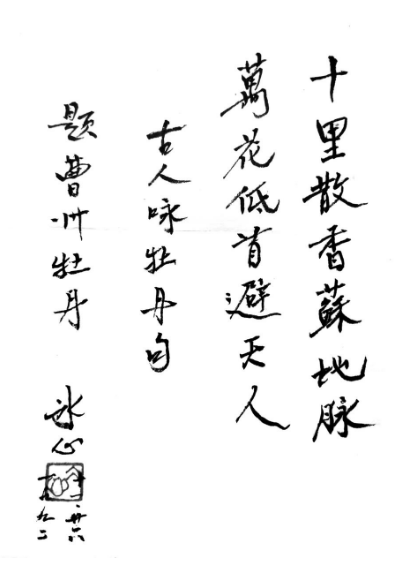 十里散香蘇地脉
萬花低首避天人
古人咏牡丹句
题曹州牡丹
冰心
廿六
九二